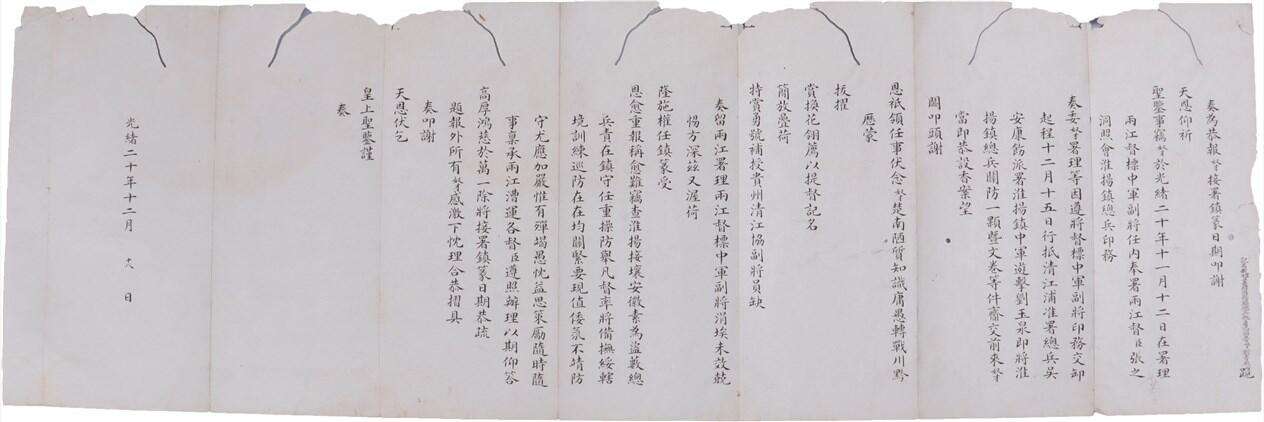 跪
奏為恭報奴才接署鎮篆日期叩謝
天恩仰祈
聖鑒事竊奴才於光緒二十年十一月十二日在署理
兩江督標中軍副將任內奉署兩江督臣張之
洞照會淮揚鎮總兵印務
奏委奴才署理等因遵將督標中軍副將印務交卸
起程十二月十五日行抵清江浦准署總兵吳
安康飭派署淮揚鎮中軍遊擊劉玉泉即將淮
揚鎮總兵關防一顆暨文卷等件齎交前來奴才
當即恭設香案望
闕叩頭謝
恩祇領任事伏念奴才楚南陋質知識庸愚轉戰川黔
歷蒙
拔擢
賞換花翎薦以提督記名
簡放疊荷
特賞勇號補授貴州清江協副將員缺
奏留兩江署理兩江督標中軍副將涓埃未效兢
惕方深茲又渥荷
隆施權任鎮篆受
恩愈重報稱愈難竊查淮揚接壤安徽素為盜藪總
兵責在鎮守任重操防舉凡督率將備撫綏轄
境訓練巡防在在均關緊要現值倭氛不靖防
守尤應加嚴惟有殫竭愚忱益思策勵隨時隨
事稟承兩江漕運各督臣遵照辦理以期仰答
高厚鴻慈於萬一除將接署鎮篆日期恭疏
題報外所有奴才感激下忱理合恭摺具
奏叩謝
天恩伏乞
皇上聖鑒謹
奏
光緒二十年十二月 十八 日